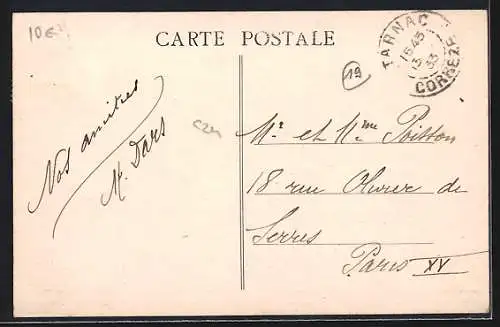 10€
CARTE POSTALE
TARNAC
15 45
13
33
CORREZE
19
Nos amitiés
M. Dars
Mr et Mme Poisson
18 rue Olivier de
Serres
Paris XV